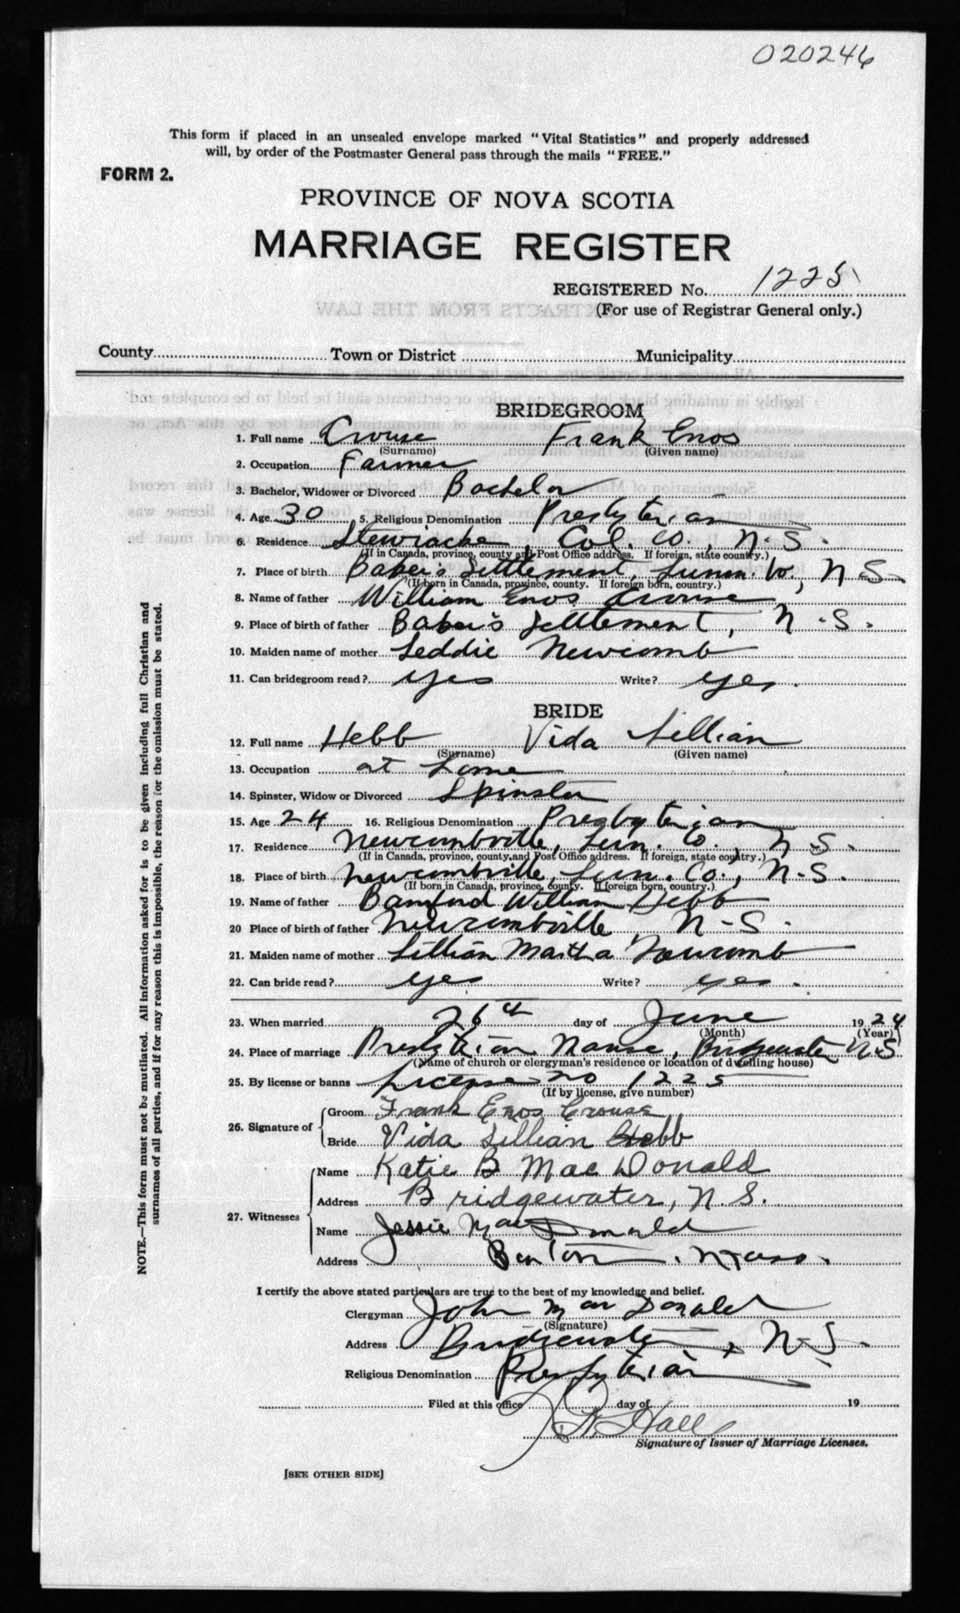 020246
This form if placed in an unsealed envelope marked "Vital Statistics" and properly addressed
will, by order of the Postmaster General pass through the mails "FREE."
FORM 2.
PROVINCE OF NOVA SCOTIA
MARRIAGE REGISTER
REGISTERED No. 1225
EXTRACTS FROM THE LAW
(For use of Registrar General only.)
County Town or District Municipality
BRIDEGROOM
1. Full name Crouse Frank Enos
(Surname) (Given name)
2. Occupation Farmer
3. Bachelor, Widower or Divorced Bachelor
4. Age 30 5. Religious Denomination Presbyterian
6. Residence Stewiacke, Col. Co., N.S.
(If in Canada, province, county and Post Office address. If foreign, state country.)
7. Place of birth Baker's Settlement, Lunn. Co., N.S.
(If born in Canada, province, county. If foreign born, country.)
8. Name of father William Enos Crouse
9. Place of birth of father Baker's Settlement, N.S.
10. Maiden name of mother Leddie Newcomb
11. Can bridegroom read? yes Write? yes.
BRIDE
12. Full name Hebb Vida Lillian
(Surname) (Given name)
13. Occupation at home
14. Spinster, Widow or Divorced Spinster
15. Age 24 16. Religious Denomination Presbyterian
17. Residence Newcombville, Lun. Co., N.S.
(If in Canada, province, county and Post Office address. If foreign, state country.)
18. Place of birth Newcombville, Lun. Co., N.S.
(If born in Canada, province, county. If foreign born, country.)
19. Name of father Bamford William Hebb
20 Place of birth of father Newcombville, N.S.
21. Maiden name of mother Lillian Martha Newcomb
22. Can bride read? yes Write? yes.
23. When married 26th day of June 1924
(Month) (Year)
24. Place of marriage Presbyterian Manse, Bridgewater N.S
(Name of church or clergyman's residence or location of dwelling house)
25. By license or banns License no 1225
(If by license, give number)
26. Signature of Groom Frank Enos Crouse
Bride Vida Lillian Hebb
27. Witnesses Name Katie B MacDonald
Address Bridgewater, N.S.
Name Jessie MacDonald
Address Mass.
I certify the above stated particulars are true to the best of my knowledge and belief.
Clergyman John MacDonald
(Signature)
Address Bridgewater, N.S.
Religious Denomination Presbyterian
Filed at this office day of 19
Hall
Signature of Issuer of Marriage Licenses.
[SEE OTHER SIDE]
NOTE.—This form must not be mutilated. All information asked for is to be given including full Christian and
surnames of all parties, and if for any reason this is impossible, the reason for the omission must be stated.